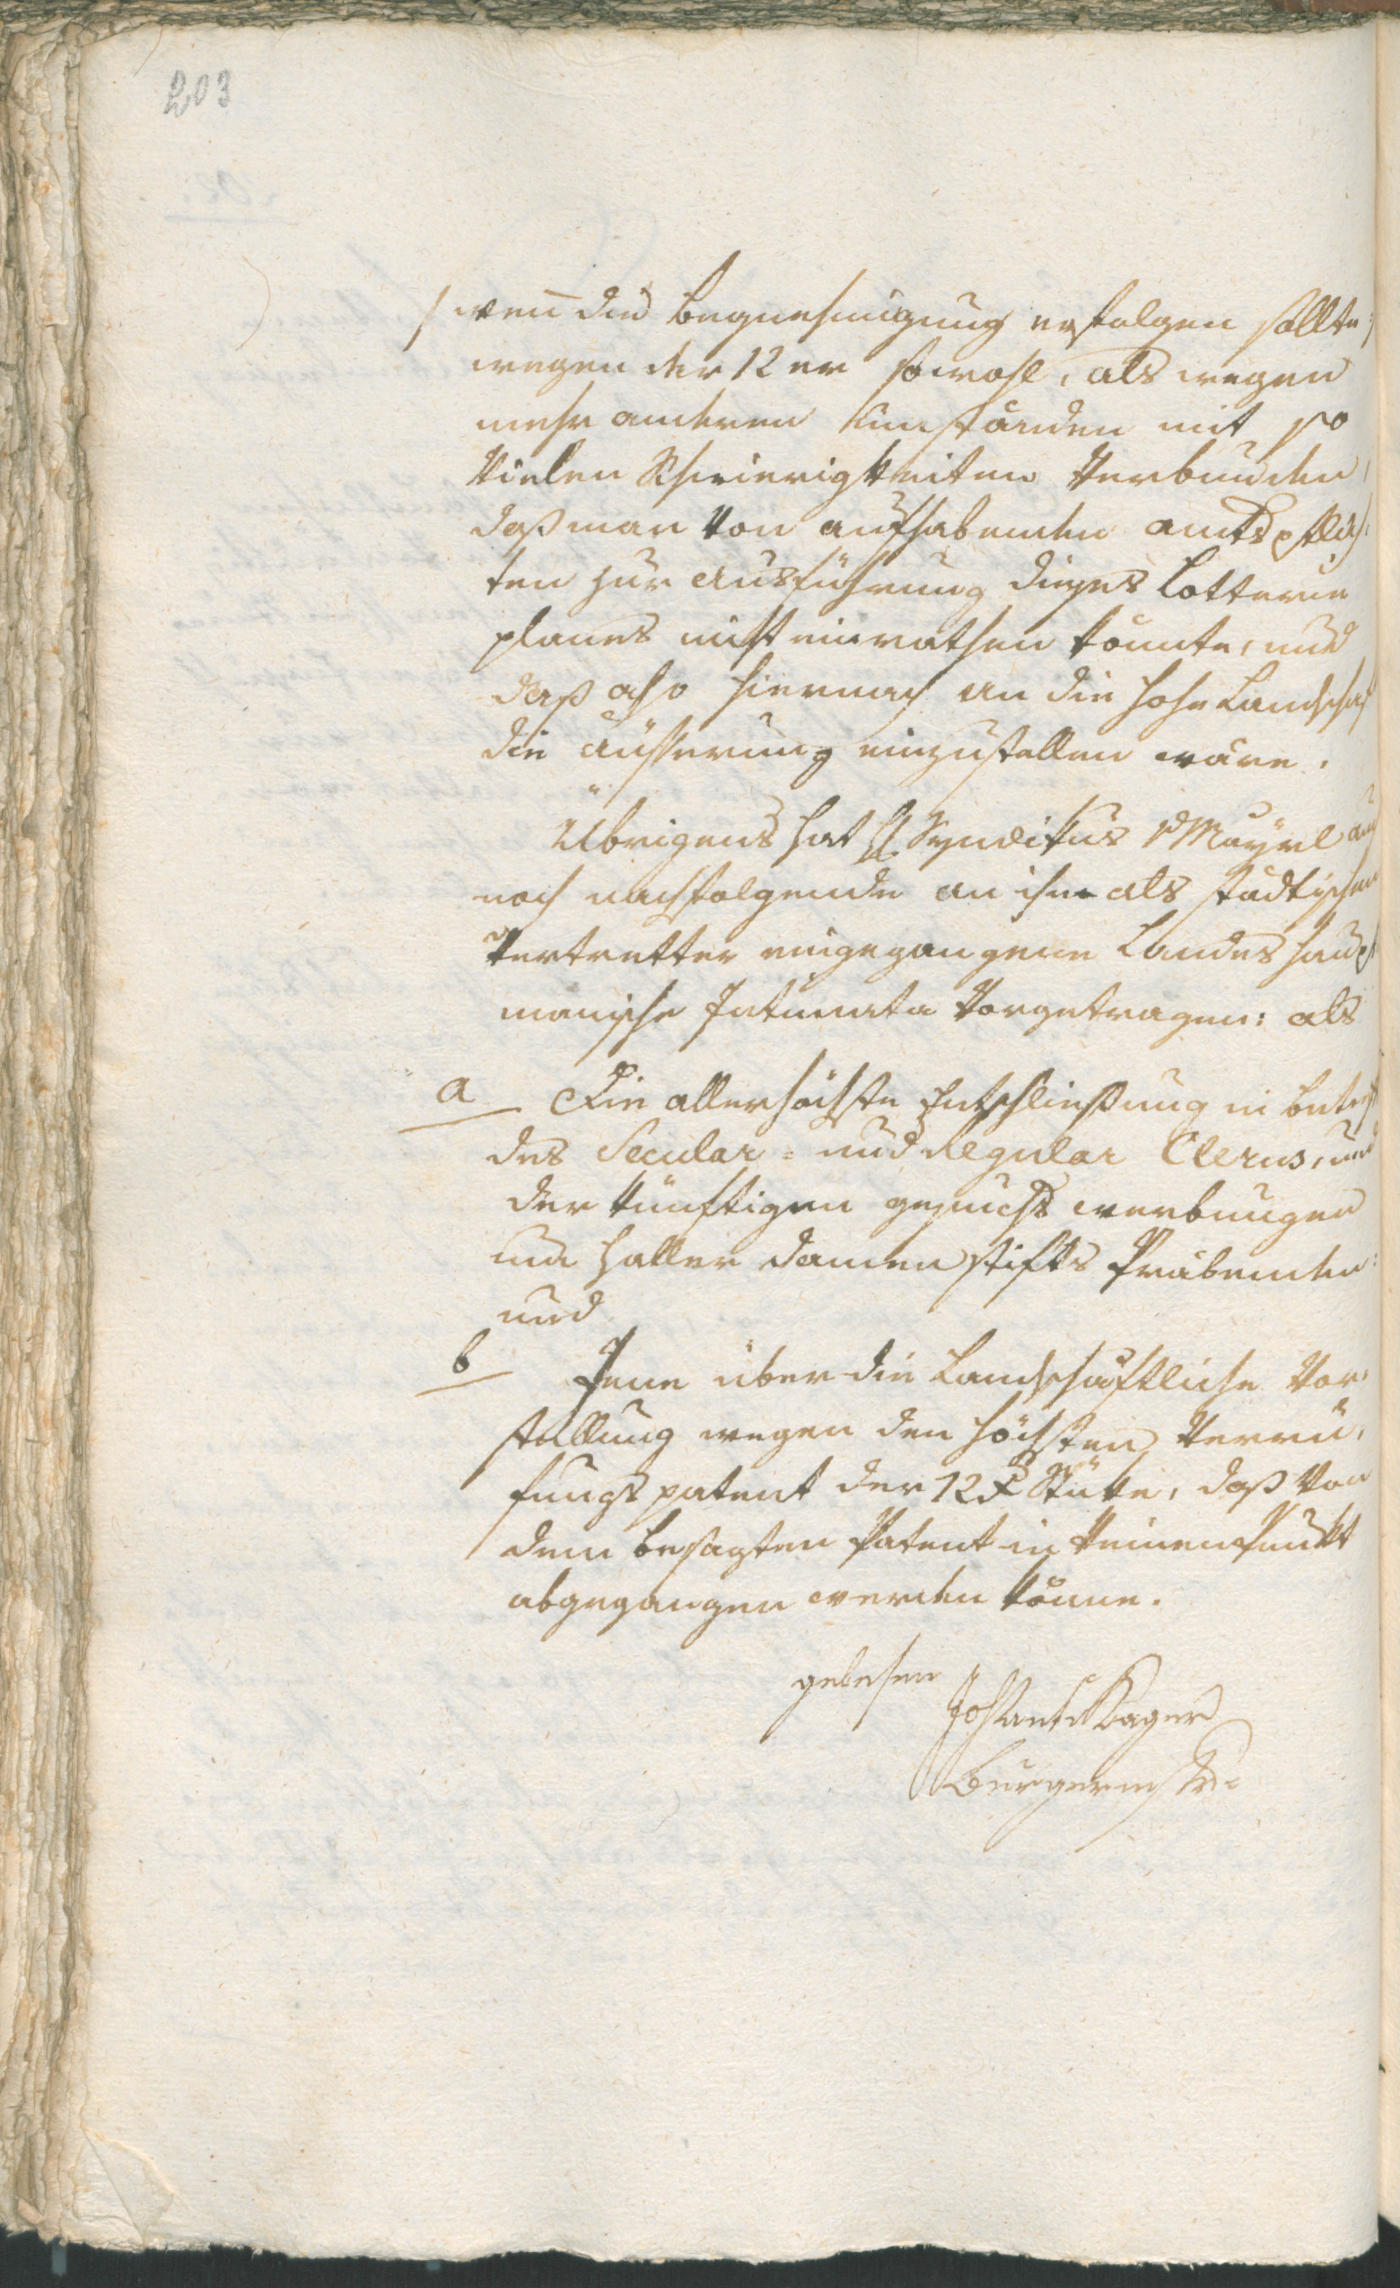 203
/ weñ die Begnehmigung erfolgen sollte /
wegen der 12er sowohl, als wegen
mehr anderen Umständen mit so
vielen Schwierigkeiten verbunden,
daß man von aufhabenden Amtspflich-
ten zur Ausführung dieses Lotterie
planes nicht einrathen könnte, und
daß also hiernach an die hohe Landschaft
die Äusserung einzustellen wäre.
Übrigens hat H. Syndikus v Mayrl auch
noch nachfolgende an ihm als städtischen
Vertretter eingegangene Landeshaupt
manische Intimata vorgetragen: als
a Die allerhöchste Entschliessung in betreff
des Secular- und Regular Clerus, und
der künftigen gesuchs werbungen
um Haller Damenstifts Präbenden:
und
b Jene über die Landschaftliche Vor-
stellung wegen den höchsten Verru-
fungspatent der 12 Xr Stüke, daß von
dem besagten Patent in keinen Punkt
abgegangen werden könne.
gelesen
Joh Kager
Burgermstr